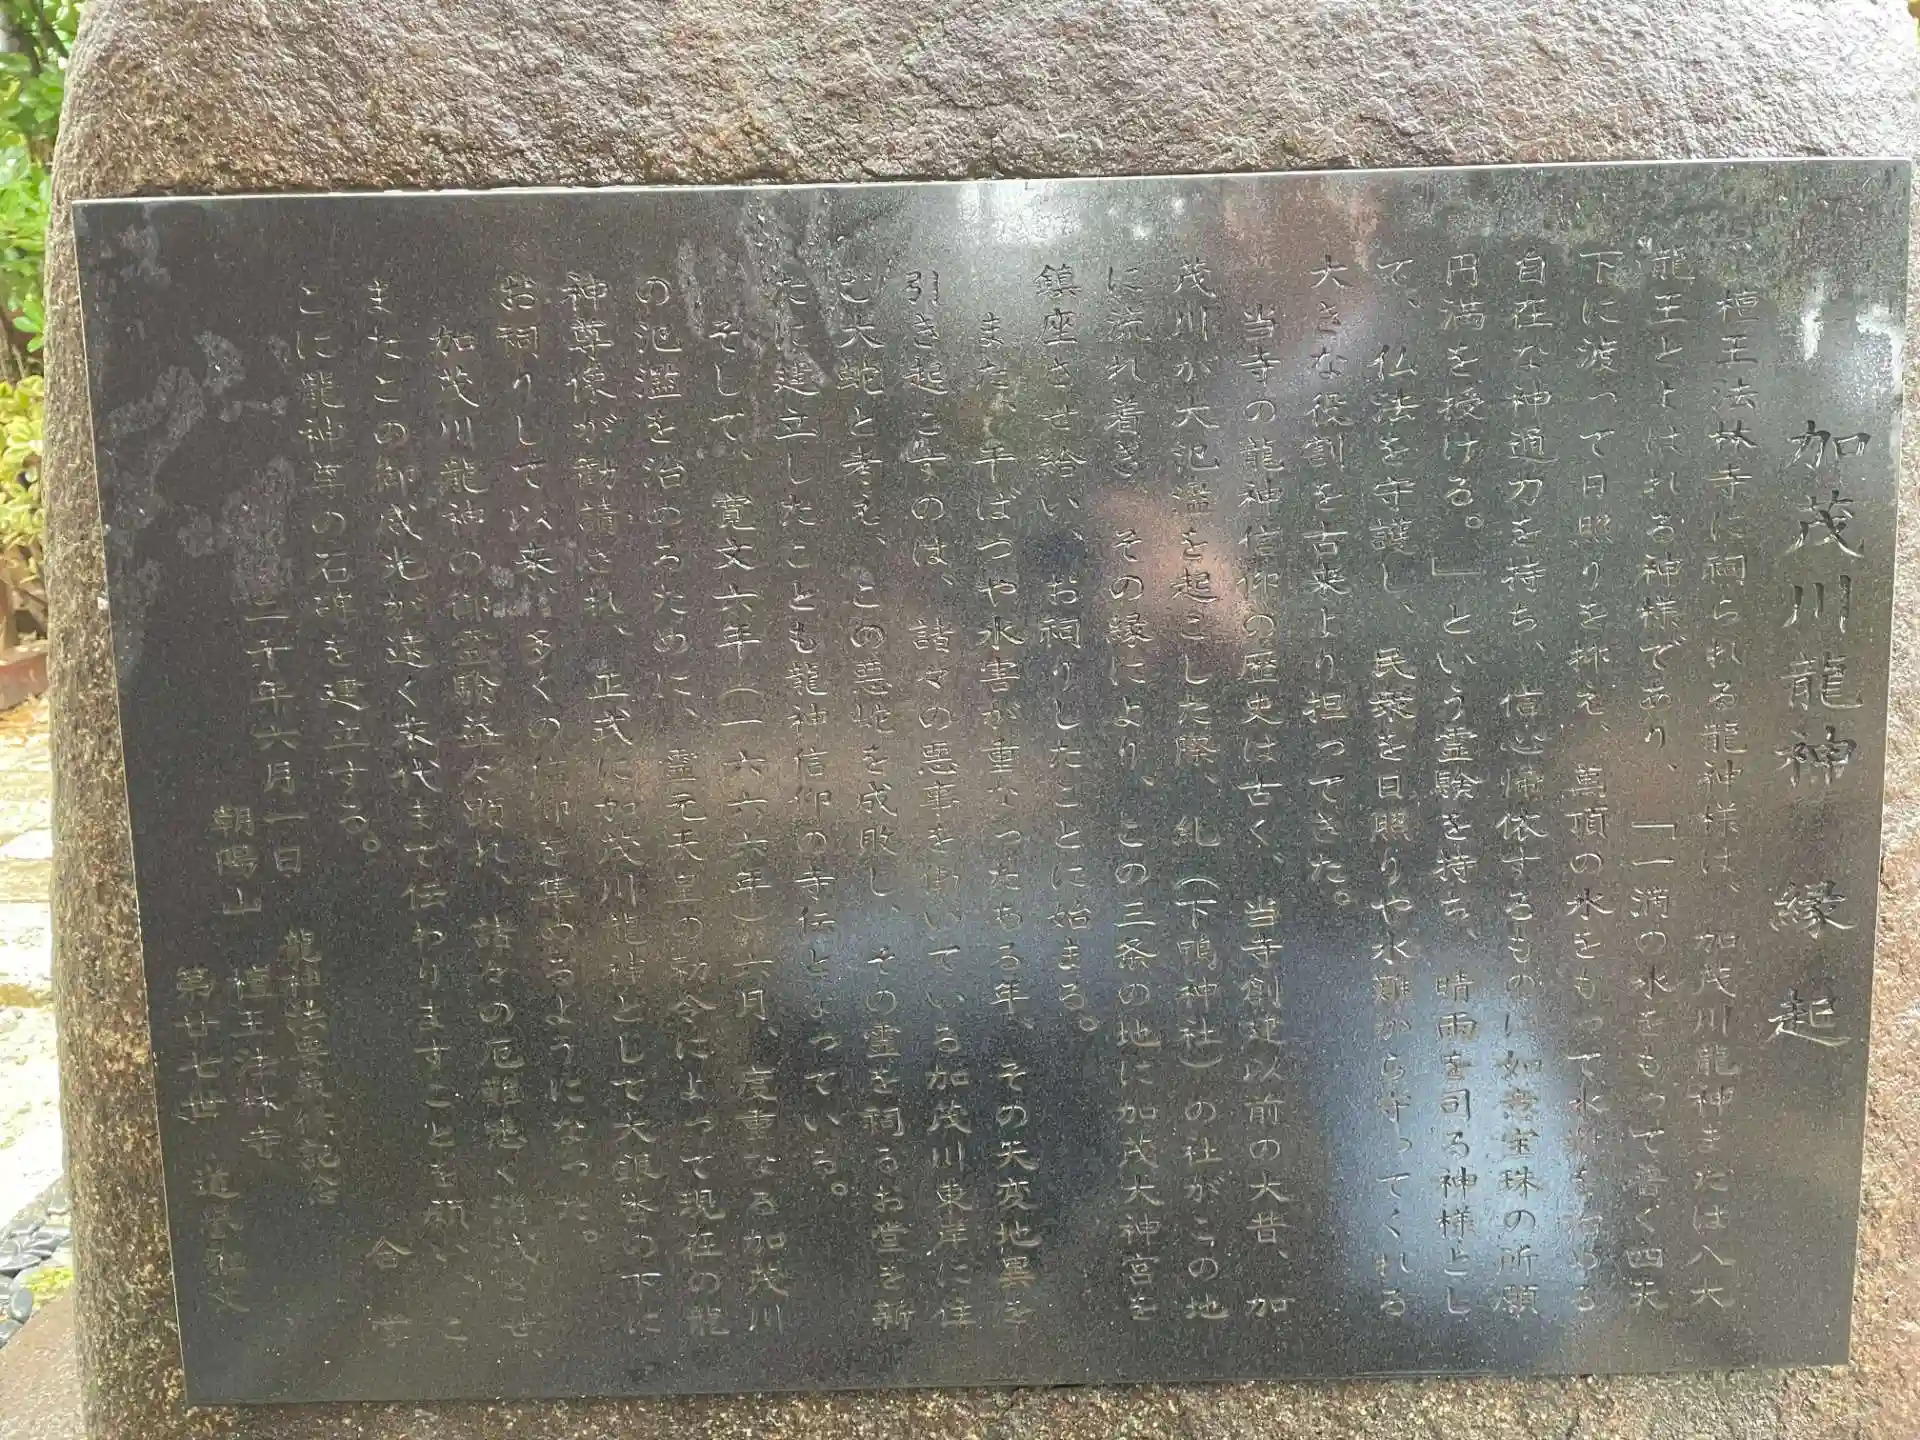 加茂川龍神縁起
檀王法林寺に祠られる龍神様は、加茂川龍神または八大
龍王とよばれる神様であり、「一滴の水をもって普く四天
下に渡って日照りを抑え、萬頂の水をもって水難を治める
自在な神通力を持ち、信心帰依するものに如意宝珠の所願
円満を授ける。」という霊験を持ち、晴雨を司る神様とし
て、仏法を守護し、民衆を日照りや水難から守ってくれる
大きな役割を古来より担ってきた。
当寺の龍神信仰の歴史は古く、当寺創建以前の大昔、加
茂川が大氾濫を起こした際、糺(下鴨神社)の社がこの地
に流れ着き、その縁により、この三条の地に加茂大神宮を
鎮座させ給い、お祠りしたことに始まる。
また、干ばつや水害が重なったある年、その天変地異を
引き起こすのは、諸々の悪事を働いている加茂川東岸に住
む大蛇と考え、この悪蛇を成敗し、その霊を祠るお堂を新
たに建立したことも龍神信仰の寺伝となっている。
そして、寛文六年(一六六六年)六月、度重なる加茂川
の氾濫を治めるために、霊元天皇の勅令によって現在の龍
神尊像が勧請され、正式に加茂川龍神として大銀杏の下に
お祠りして以来、多くの信仰を集めるようになった。
加茂川龍神の御霊験益々顕れ、諸々の厄難悉く消滅させ、
またこの御威光が遠く末代まで伝わりますことを願い、こ
こに龍神尊の石碑を建立する。
合掌
二千年六月一日
朝陽山 檀王法林寺
第廿七世